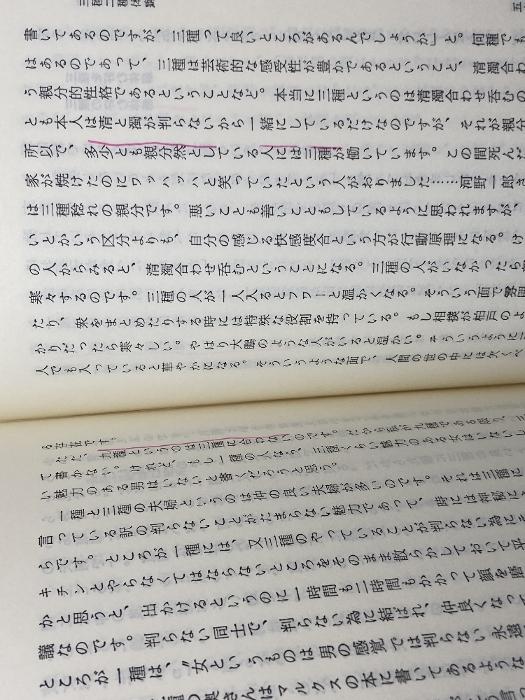 三種 二種体験
五
書いてあるのですが、三種って良いところがあるんでしょうか」と。何種でも
はあるのであって、三種は芸術的な感受性が豊かであるということ、清濁合わ
う親分的性格であるということなど。本当に三種というのは清濁合わせ呑むの
とも本人は清と濁が判らないから一緒にしているだけなのですが、それが親分
所以で、多少とも親分然としている人には三種が働いています。この間死んだ
家が焼けたのにワッハッハと笑っていたという人がおりました……河野一郎さ
は三種捻れの親分です。悪いことも善いこともしているように思われますが、
いとかいう区分よりも、自分の感じる快感度合という方が行動原理になる。け
の人からみると、清濁合わせ呑むということになる。三種の人がいなかったら
寒々するのです。三種の人が一人入るとフワーと温かくなる。そういう面で雰囲
たり、衆をまとめたりする時には特殊な役割を持っている。もし相撲が柏戸のよ
かりだったら寒々しい。やはり大鵬のような人がいると温かい。そういうように三
人でも入っていると華やかになる。そういうような面で、人間の世の中には欠くべ
る存在です。
ただ、九種というのは三種に合わないのです。だから私が九種である限り、
て書かない。けれど、もし一種の人なら、三種くらい魅力のある女はいないし
い魅力のある男はいないと書くだろうと思う。
一種と三種の夫婦というのは仲の良い夫婦が多いのです。それは三種に
言っている訳の判らないことがたまらない魅力であって、時には
らです。ところが一種には、又三種のやっていることが判らない為に
キチンとやらなくてはならないところをそのまま散らかしておいて平
かと思うと、出かけるというのに一時間も二時間もかかって顔を
議なのです。判らない同士で、判らない為に結ばれ、仲良くなって
ところが一種は、〝女というものは男の感覚では判らない永遠
奥さんはマルクスの本に書いてあるような